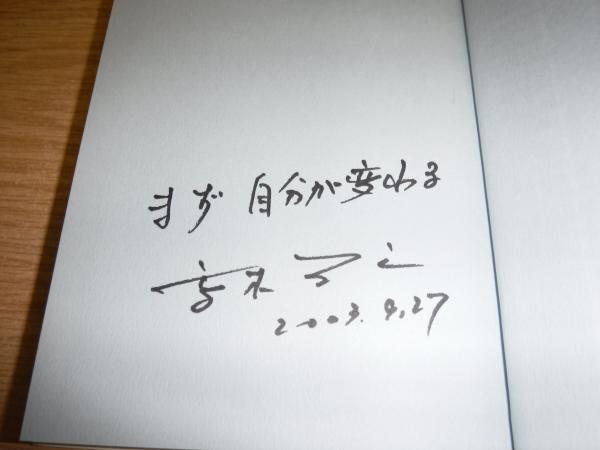 まず 自分が変わる
2003. 9.27